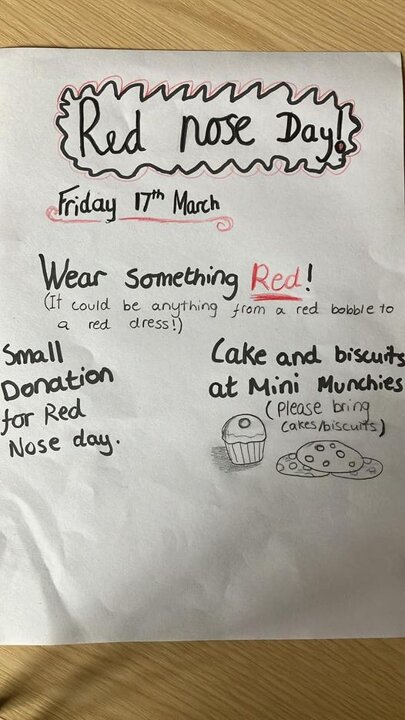 Red nose Day!
Friday 17th March
Wear something Red!
(It could be anything from a red bobble to
a red dress!)
Small
Donation
for Red
Nose day.
Cake and biscuits
at Mini Munchies
(Please bring
cakes/biscuits)